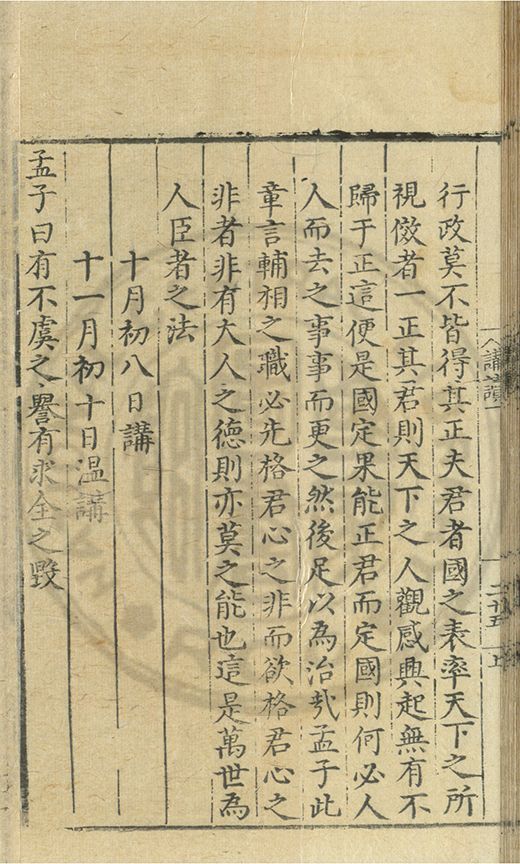 行政莫不皆得其正夫君者國之表率天下之所
視傚者一正其君則天下之人觀感興起無有不
歸于正這便是國定果能正君而定國則何必人
人而去之事事而更之然後足以為治㢤孟子此
章言輔相之職必先格君心之非而欲格君心之
非者非有大人之德則亦莫之能也這是萬世為
人臣者之法
十月初八日講
十一月初十日温講
孟子曰有不虞之譽有求全之毀